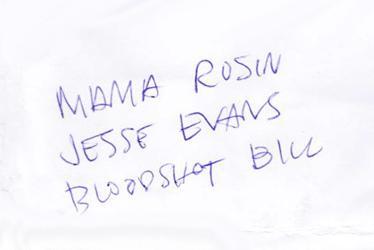 MAMA ROSIN
JESSE EVANS
BLOODSHOT BILL